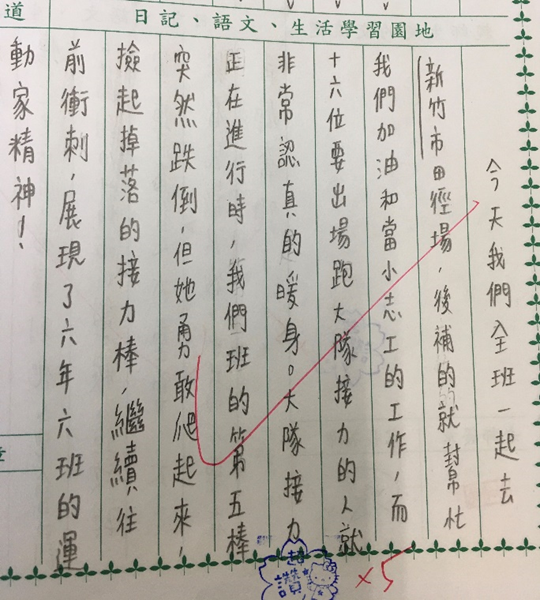 日記、語文、生活學習園地
道
今天我們全班一起去
新竹市田徑場，後補的就幫忙
我們加油和當小志工的工作，而
十六位要出場跑大隊接力的人就
非常認真的暖身。大隊接力
正在進行時，我們班的第五棒
突然跌倒，但她勇敢爬起來，
撿起掉落的接力棒，繼續往
前衝刺，展現了六年六班的運
動家精神！
超讚
×5